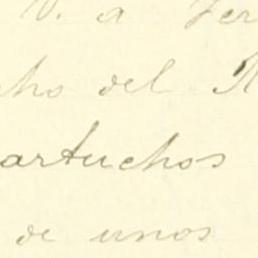 V. a Ver
cho del R
artuchos
de unos